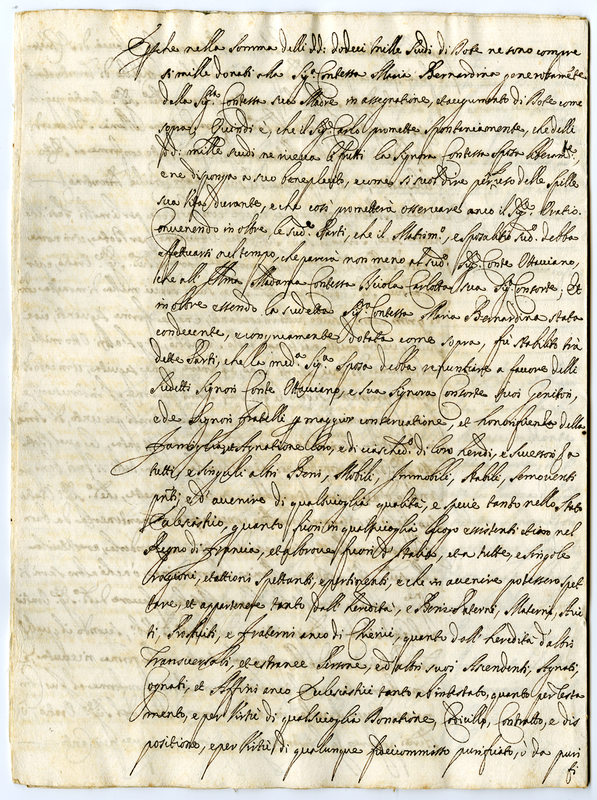 che nella somma delli dd: dodeci mille scudi di Dote ne sono compre
si mille donati alla Sig.ra Contessa Maria Bernardina
dalla Sig.ra Contessa sua Madre in assegnatione, et augumento di Dote come
sopra, Quindi è, che il Sig.r Carlo promette spontaneamente, che delli
dd: mille scudi ne riceva li frutti la Signora Contessa Sposa liberam.te,
e ne disponga a suo beneplacito, e come si suol dire per uso delle spille
sua vita durante, e che così prometterà osservare anco il Sig.r Oratio.
Convenendo in oltre le sud.e Parti, che il Matrim.o, e sposalitio sud.o debba
effettuarsi nel tempo, che parerà non meno al sud.o Sig.r Conte Ottaviano,
che all' Ill.ma Madama Contessa Carlotta sua Sig.ra Consorte; Et
in oltre essendo la sudetta Sig.ra Contessa Maria Bernardina stata
condecente, e congruamente dotata come sopra, fù stabilito trà
dette Parti, che la med.a Sig.ra Sposa debba refuntiare a favore delli
sudetti Signori Conte Ottaviano, e sua Signora Consorte suoi Genitori,
e de Signori fratelli maggior conservatione, et della
famiglia, et Agnatione loro, e di ciasched.o di loro heredi, e successori a
tutti, e singuli altri Beni, Mobili, Immobili, stabili, semoventi
pnti, e d'avenire di qualsivoglia qualità, e specie tanto nello stato
Eclesiastico, quanto fuori in qualsivoglia luogo esistenti etiam nel
Regno di francia, et altrove fuori d'Italia, et a tutte, e singole
ragioni, et attioni spettanti, e pertinenti, e che in avenire potessero spet
tare, et appartenere tanto dall'heredità, e Beni Paterni, Materni, Avi
ti, Proaviti, e fraterni anco di Cherici, quanto dall'heredità d'altri
Transversali, et estranee Persone, ed altri suoi Ascendenti, Agnati,
Cognati, et Affini anco Eclesiastici tanto ab intestato, quanto per testa
mento, e per virtù di qualsivoglia Donatione, Codicillo, Contratto, e dis
positione, e per virtù di qualunque fideicommisso purificato, ò da puri
fi